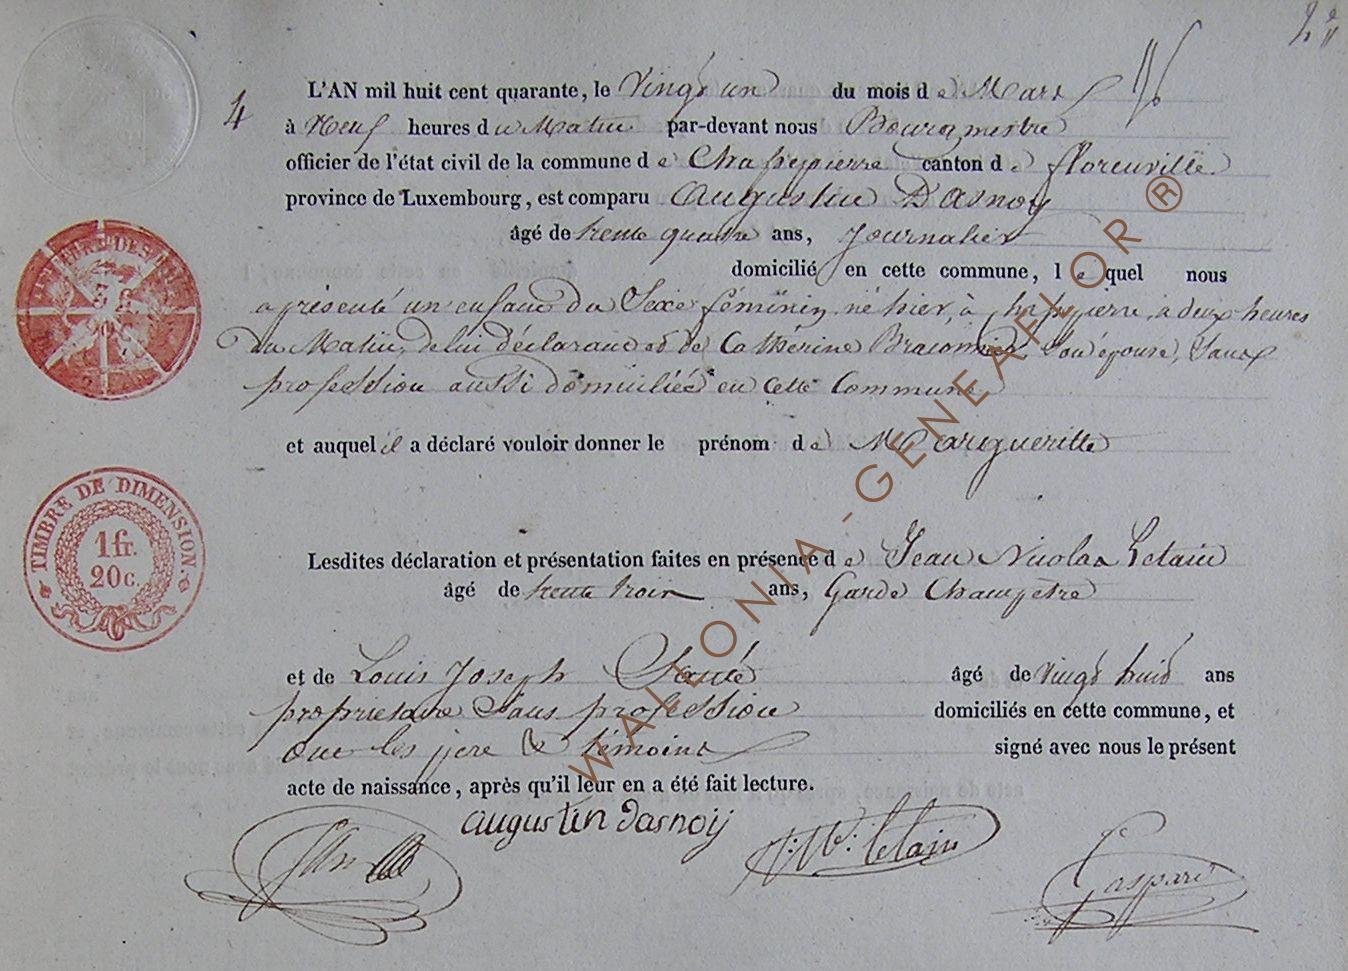 4
L'AN mil huit cent quarante, le Vingt un du mois de Mars
à Neuf heures du Matin par-devant nous Bourgmestre
officier de l'état civil de la commune de Chassepierre canton de florenville
province de Luxembourg, est comparu Augustin Dasnoy
âgé de trente quatre ans, Journalier
domicilié en cette commune, lequel nous
a présenté un enfant du Sexe féminin né hier, à Chassepierre, à deux heures
du Matin, de lui déclarant et de Cathérine Braconnier, Son épouse, Sans
profession aussi domiciliée en cette Commune
et auquel il a déclaré vouloir donner le prénom de Margueritte
Lesdites déclaration et présentation faites en présence de Jean Nicolas Letain
âgé de trente trois ans, Garde Champetre
et de Louis Joseph âgé de vingt huit ans
propriétaire Sans profession domiciliés en cette commune, et
ont les père & témoins signé avec nous le présent
acte de naissance, après qu'il leur en a été fait lecture.
augustin dasnoij
J: N: letain
Gaspard
TIMBRE DE DIMENSION
1 fr.
20 c.
WALLONIA - GENEAFLOR ®